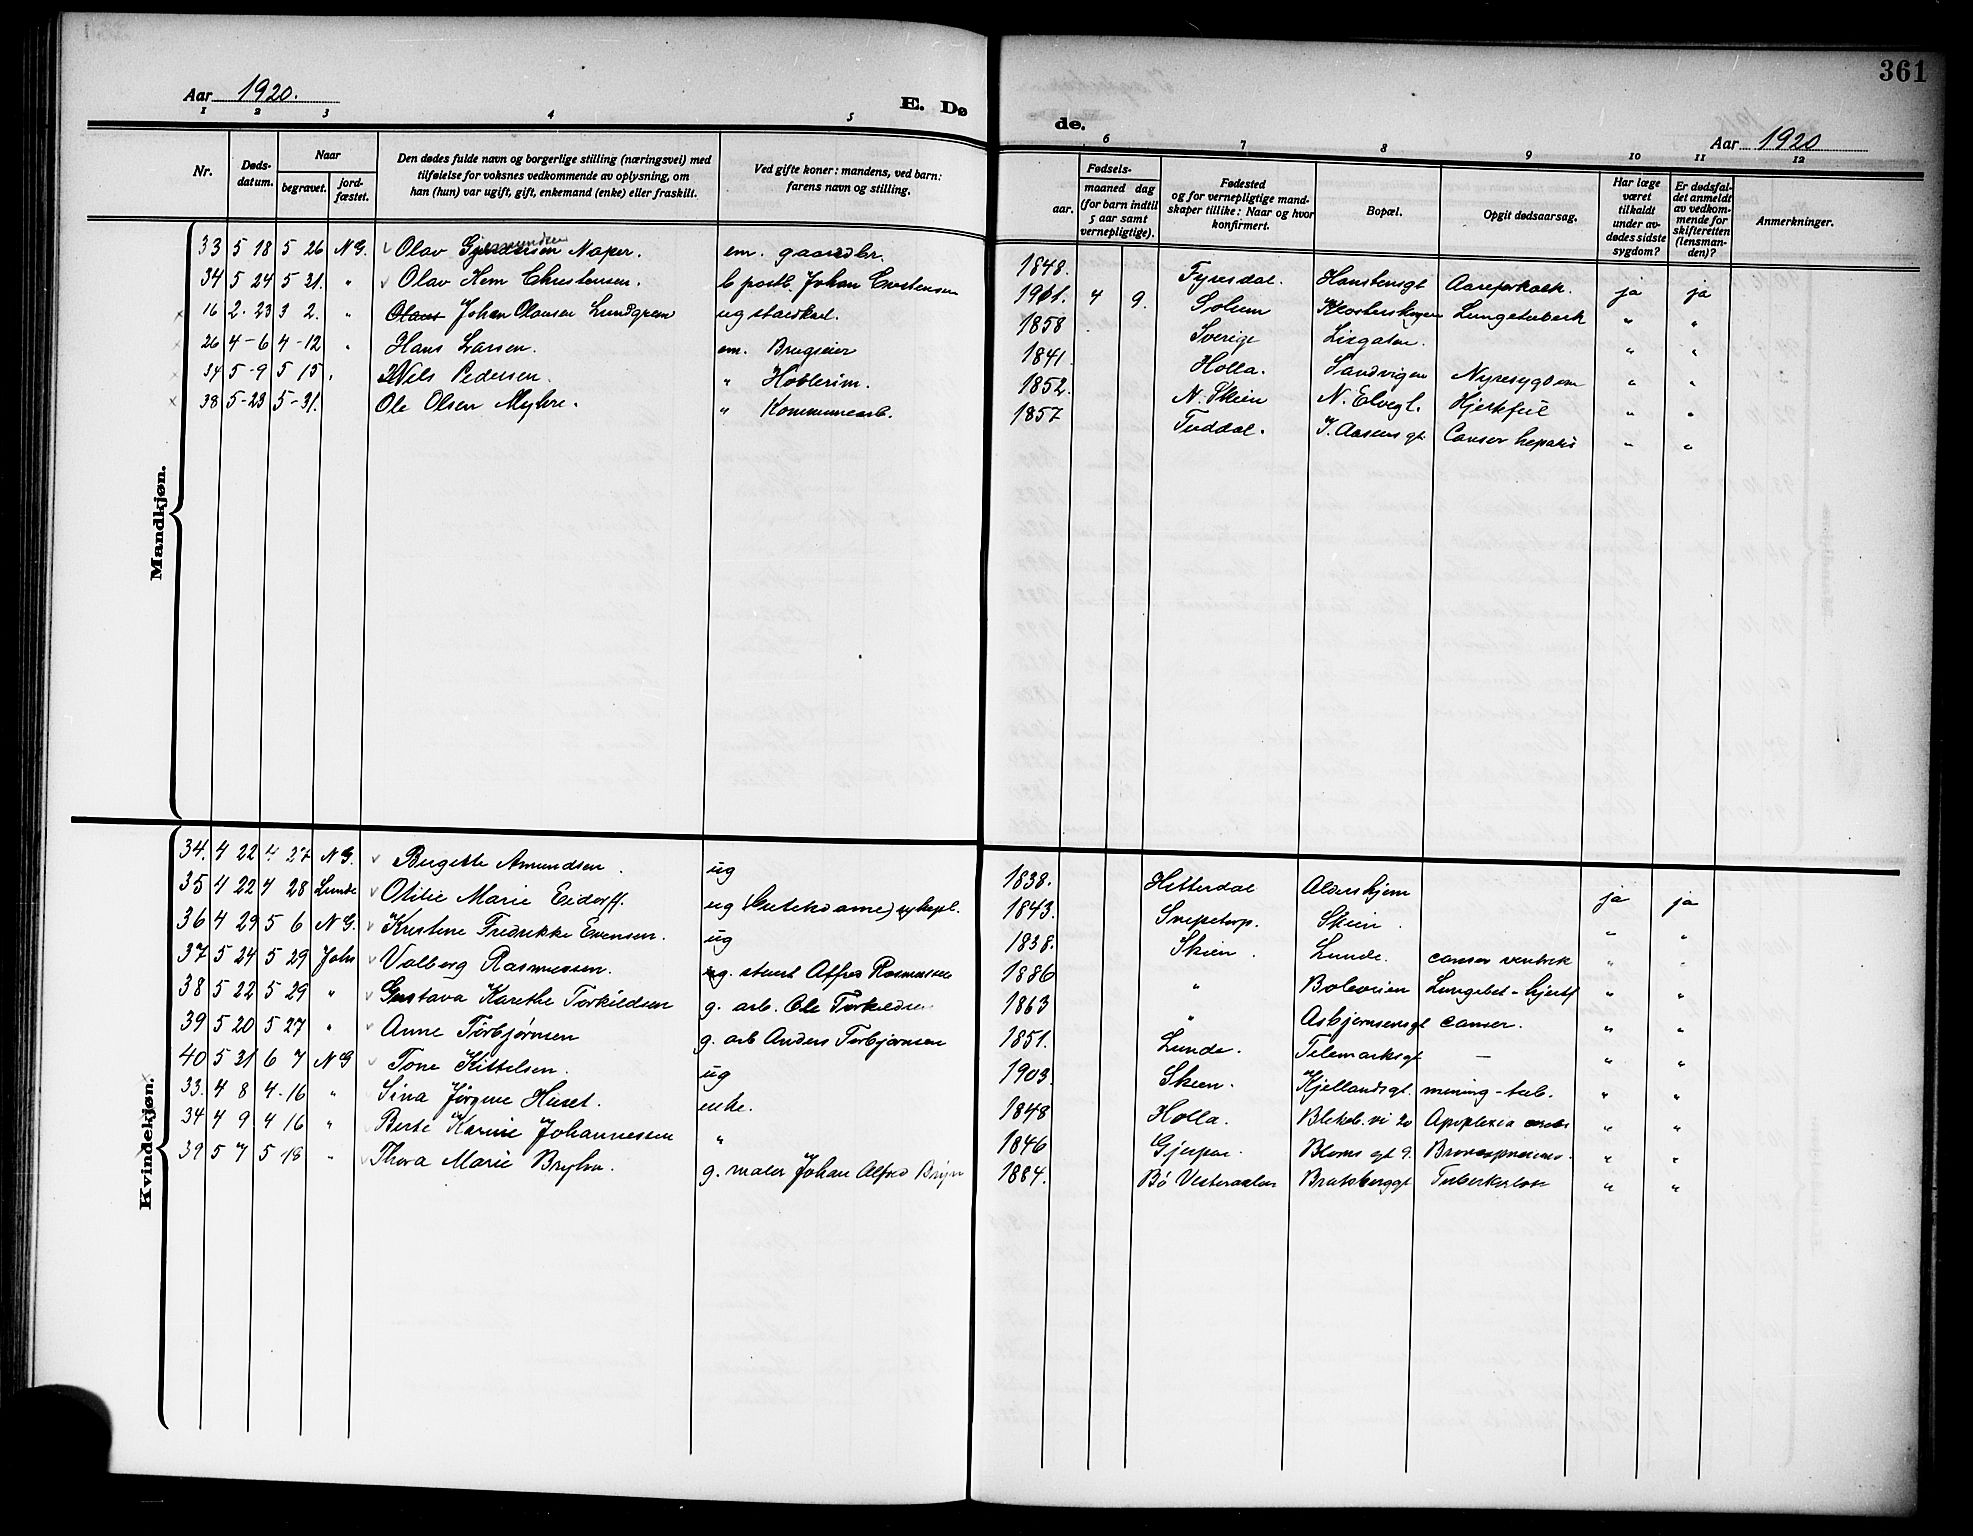 361
Aar 1920.
E. Dø
de.
Aar 1920
1 2 3 4 5 6 7 8 9 10 11 12
Nr.
Døds-
datum.
Naar
begravet.
jord-
fæstet.
Den dødes fulde navn og borgerlige stilling (næringsvei) med
tilføielse for voksnes vedkommende av oplysning, om
han (hun) var ugift, gift, enkemand (enke) eller fraskilt.
Ved gifte koner: mandens, ved barn:
farens navn og stilling.
Fødsels-
aar.
maaned dag
(for barn indtil
5 aar samt
vernepligtige).
Fødested
og for vernepligtige mand-
skaper tillike: Naar og hvor
konfirmert.
Bopæl.
Opgit dødsaarsag.
Har læge
været
tilkaldt
under av-
dødes sidste
sygdom?
Er dødsfal-
det anmeldt
av vedkom-
mende for
skifteretten
(lensman-
den)?
Anmerkninger.
Mandkjøn.
33 5 18 5 26 N G. Olav Naper. em. gaardbr. 1848. Fyresdal. Hanstensgt Aareforkalk. ja ja
34 5 24 5 31. " Olav Hem Christensen. b postb. Johan 1901. 4 9. Solum Klosterskogen Lungetuberk " "
16 2-23 3 2. " Johan Olausen Lundgren ug stuekarl. 1858 Sverige " "
26 4-6 4-12 " Hans Larsen. em. Brugseier 1841. Holla. Sandvigen Nyresygdom " "
34 5-9 5 15 " Nils Pedersen. " 1852. N. Skien N. Elvegt. Hjertefeil " "
38 5-23 5-31. Ole Olsen Myhre. " Kommunearb. 1857 Tuddal. I. Aasensgt. Canser hepatis " "
Kvindekjøn.
34. 4 22 4 27 N G. Birgitte Amundsen. ug 1838. Hitterdal Aldershjem ja ja
35 4 22 4 28 Lunde Otilie Marie Eidorff. ug 1843. Snipetorp. Skien. " "
36 4 29 5 6 N G. Kristine Fredrikke Evensen. ug 1838. Skien. Lunde. canser ventrik " "
37 5 24 5 29 Johs Valborg Rasmussen. g. stuert Alfred Rasmussen 1886 " Boleveien Lungebet-hjertf " "
38 5 22 5 29 " Gustava Karethe Torkildsen g. arb. Ole Torkildsen 1863 " Asbjørnsensgt canser. " "
39 5 20 5 27 " Anne Torbjørnsen g. arb Anders Torbjørnsen 1851. Lunde. Telemarksgt — " "
40 5 31 6 7 N G Tone Kittelsen. ug 1903. Skien. Kjellandsgt. mening-tub. " "
33. 4 8 4-16 " Sina Jørgine Huset. enke. 1848 Holla. Blekeb. vei 20 Apoplexia " "
34 4 9 4 16 " Berte Karine Johannessen " 1846 Gjerpen. Bloms gt 9. " "
39 5 7 5 18 " Thora Marie g. maler Johan Alfred 1884. Bø Vesteraalen Bratsberggt Tuberkulose " "